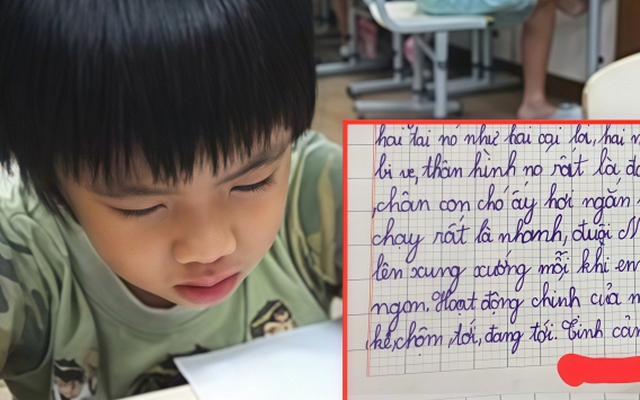 hai tai nó như hai cái lá, hai
bi ve, thân hình no rất là
chân con chó ấy hơi ngắn
chạy rất là nhanh, đuôi
lên xung xướng mỗi khi em
ngon. Hoạt động chinh của
kẻ, chộm, tới, đang tới. Tình cản